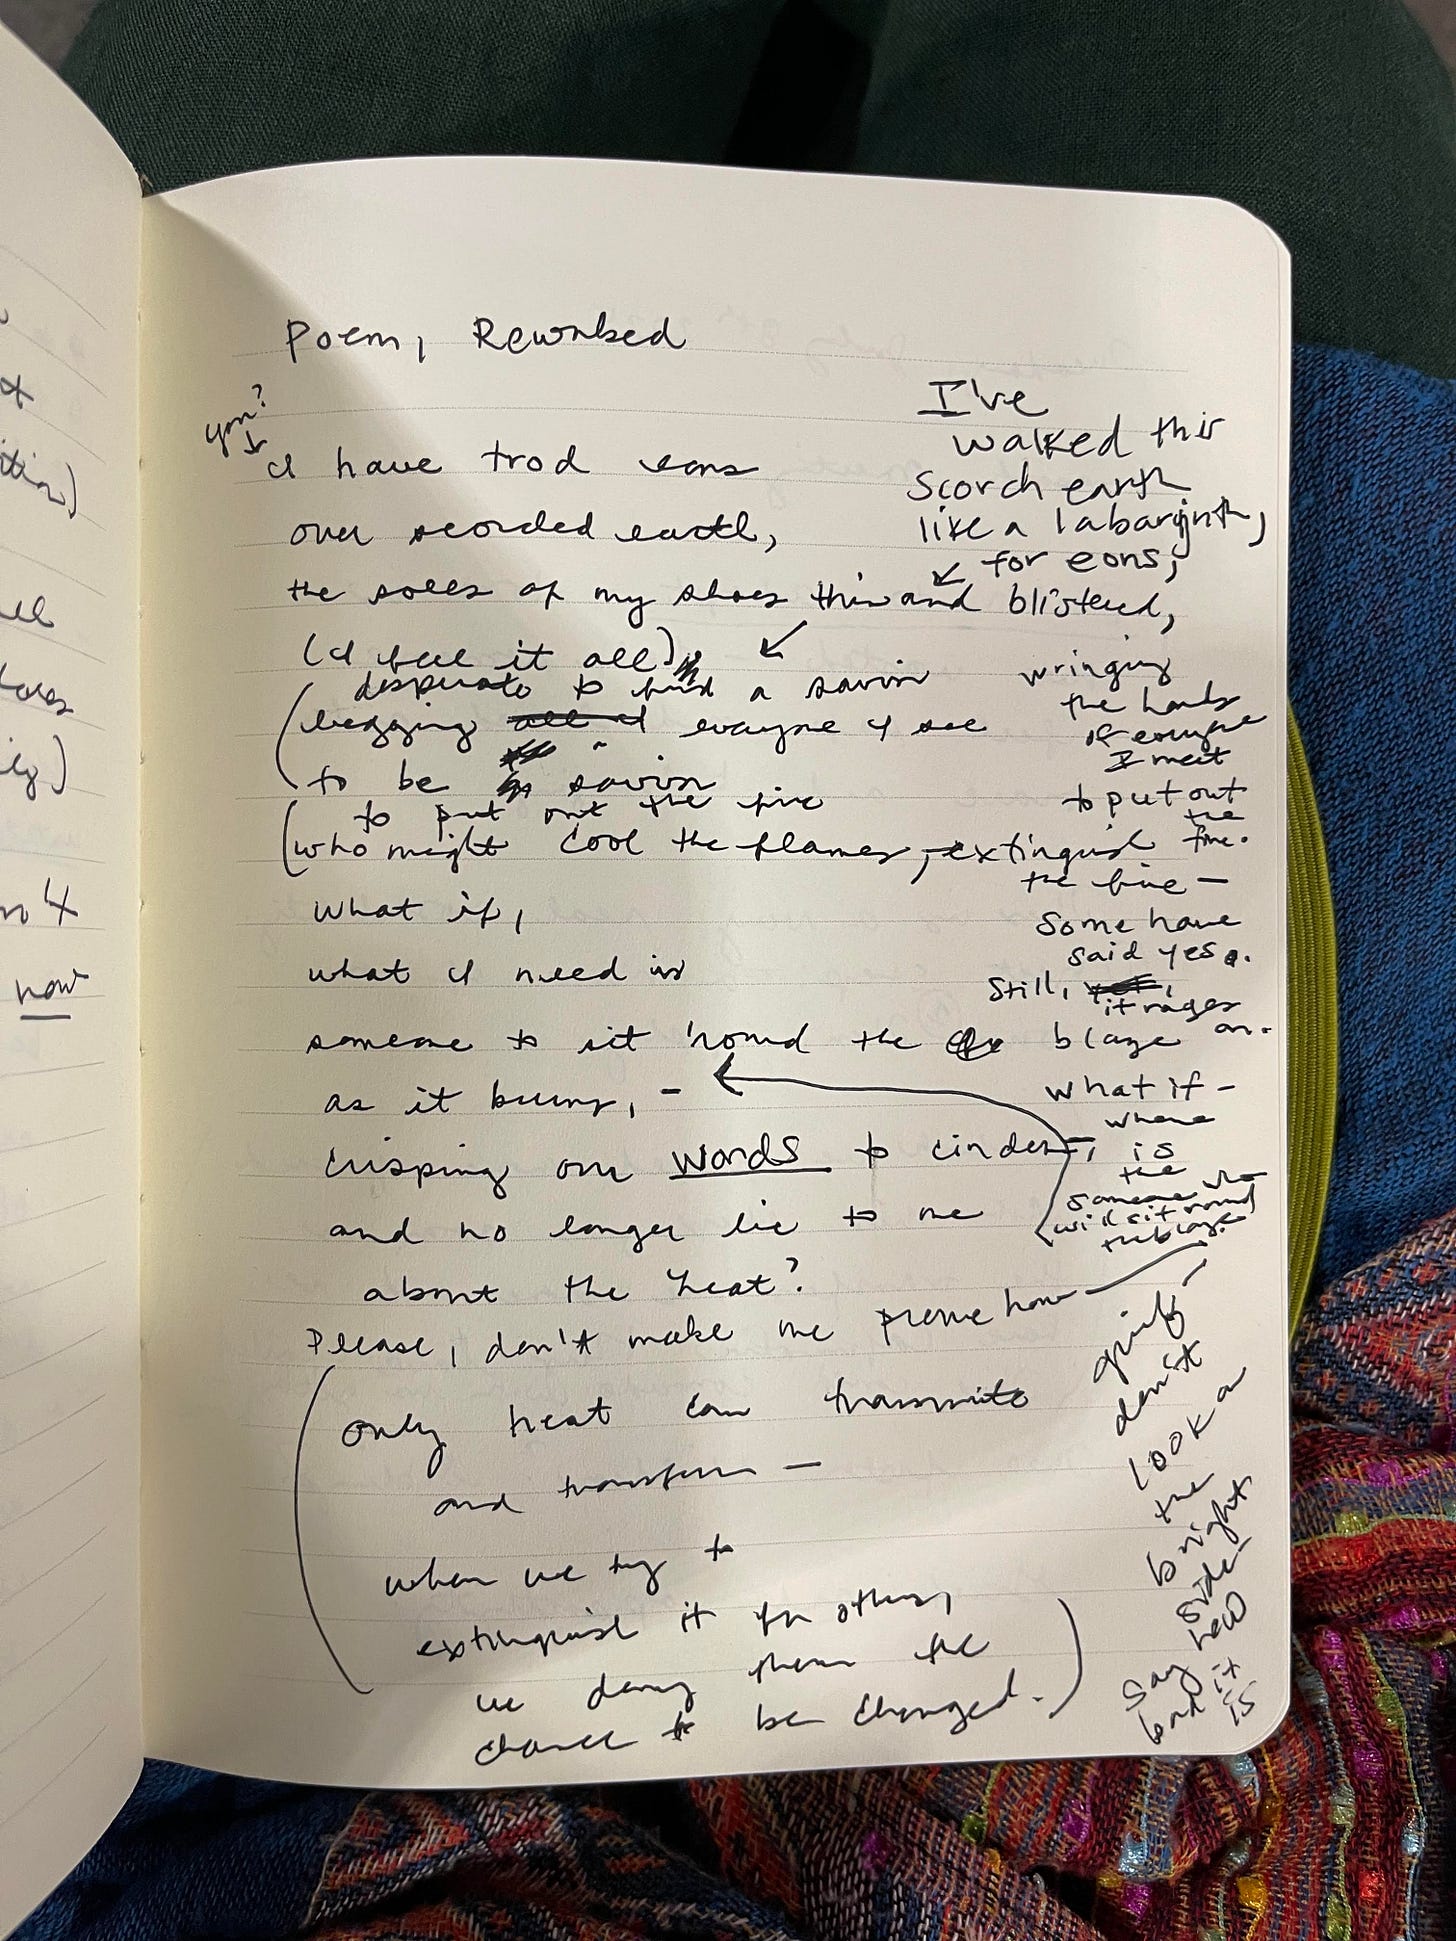 Poem, Reworked
you?
I have trod eons
over scorched earth,
the soles of my shoes thin and blistered,
(I feel it all)
desperate to find a savior
begging all I everyone I see
to be savior
to put out the fire
(who might cool the flames, extinguish
the fire —
what if,
what I need is
someone to sit 'round the blaze
as it burns, —
crisping our words to cinder,
and no longer lie to me
about the heat?
Please, don't make me prove how
(only heat can transmute
and transform —
when we try to
extinguish it for others,
we deny them the
chance to be changed.)
I've
walked this
scorch earth
like a labarynth,
for eons,
wringing
the hands
of everyone
I meet
to put out
the
fire.
Some have
said yes.
Still, yet,
it rages
on.
What if —
where
is
the
someone who
will sit round
the blaze
grief
don't
look a
the
bright
side
how
say
bad it
is
ll
n 4
now